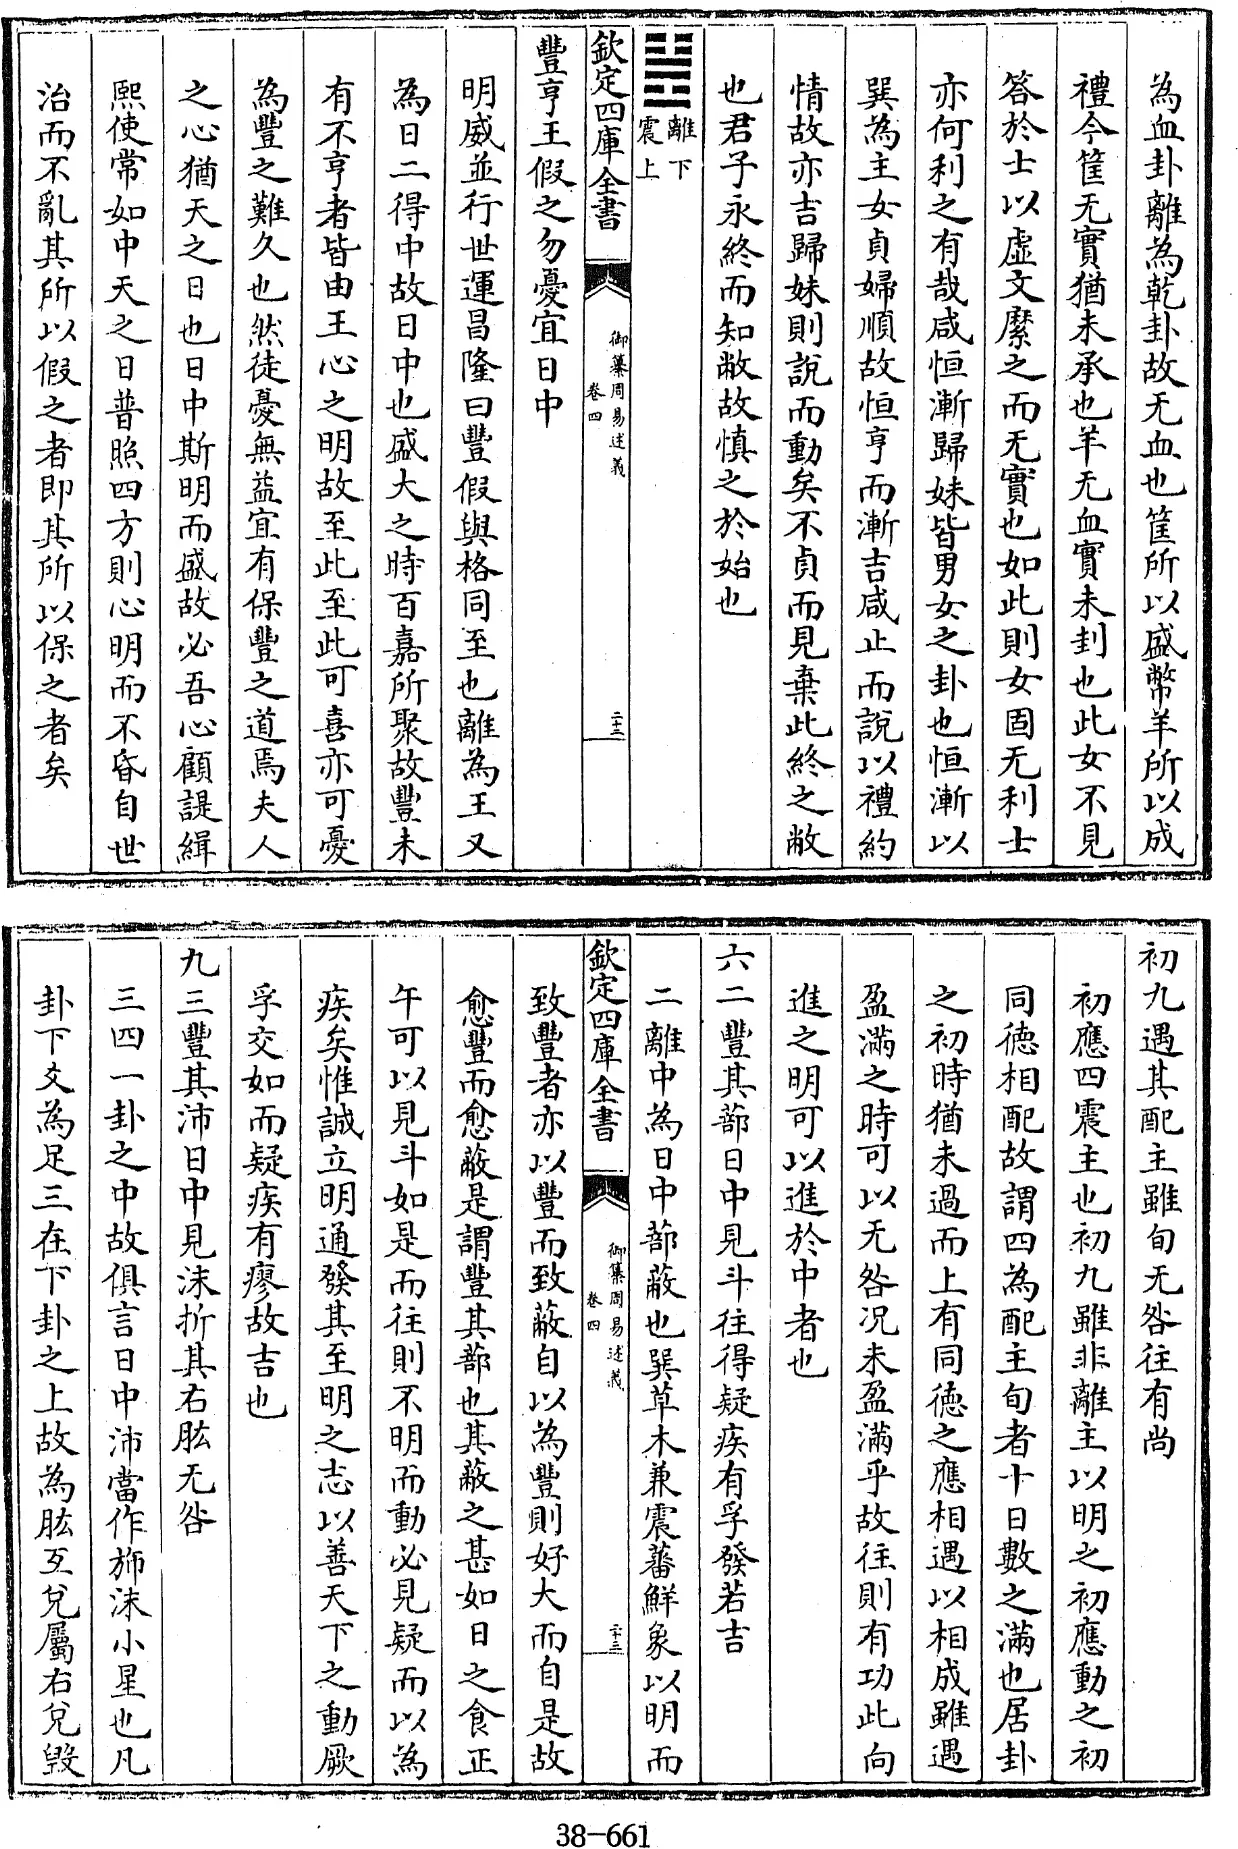 為血卦離為乾卦故无血也筐所以盛幣羊所以成
禮今筐无實猶未承也羊无血實未刲也此女不見
答於士以虛文縻之而无實也如此則女固无利士
亦何利之有哉咸恒漸歸妹皆男女之卦也恒漸以
巽為主女貞婦順故恒亨而漸吉咸止而說以禮約
情故亦吉歸妹則說而動矣不貞而見棄此終之敝
也君子永終而知敝故慎之於始也
離下
震上
欽定四庫全書
御纂周易述義
卷四
二十三
豐亨王假之勿憂宜日中
明威並行世運昌隆曰豐假與格同至也離為王又
為日二得中故日中也盛大之時百嘉所聚故豐未
有不亨者皆由王心之明故至此至此可喜亦可憂
為豐之難久也然徒憂無益宜有保豐之道焉夫人
之心猶天之日也日中斯明而盛故必吾心顧諟緝
熙使常如中天之日普照四方則心明而不昏自世
治而不亂其所以假之者即其所以保之者矣
初九遇其配主雖旬无咎往有尚
初應四震主也初九雖非離主以明之初應動之初
同德相配故謂四為配主旬者十日數之滿也居卦
之初時猶未過而上有同德之應相遇以相成雖遇
盈滿之時可以无咎况未盈滿乎故往則有功此向
進之明可以進於中者也
六二豐其蔀日中見斗往得疑疾有孚發若吉
二離中為日中蔀蔽也巽草木兼震蕃鮮象以明而
欽定四庫全書
御纂周易述義
卷四
二十三
致豐者亦以豐而致蔽自以為豐則好大而自是故
愈豐而愈蔽是謂豐其蔀也其蔽之甚如日之食正
午可以見斗如是而往則不明而動必見疑而以為
疾矣惟誠立明通發其至明之志以善天下之動厥
孚交如而疑疾有瘳故吉也
九三豐其沛日中見沬折其右肱无咎
三四一卦之中故俱言日中沛當作斾沬小星也凡
卦下爻為足三在下卦之上故為肱互兌屬右兌毀
38-661